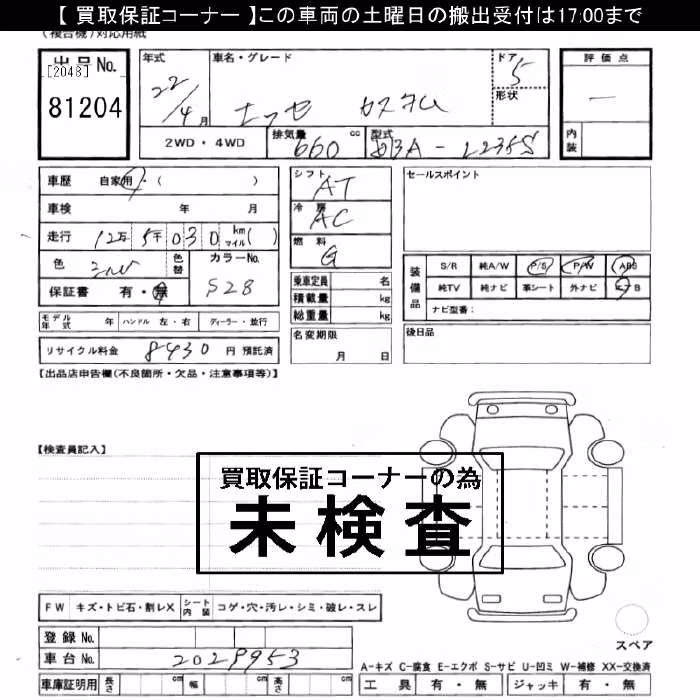 【 買取保証コーナー 】この車両の土曜日の搬出受付は17:00まで
(複合機)対応用紙
出品No.
[2048]
81204
年式 22/4月
車名・グレード エッセ カスタム
ドア 5
形状
評価点 ー
内装
2WD・4WD
排気量 660 cc
型式 DBA-L235S
車歴 自家用・( )
車検 年 月
走行 12万5千030 km マイル( )
色 シルバ
色替
カラーNo. S28
保証書 有・無
シフト AT
冷房 AC
燃料 G
乗車定員 名
積載量 kg
総重量 kg
名変期限 月 日
セールスポイント
装備品
S/R 純A/W P/S P/W ABS
純TV 純ナビ 革シート 外ナビ エアB
ナビ型番:
後日品
モデル年式 年 ハンドル 左・右 ディーラー・並行
リサイクル料金 8430 円 預託済
【出品店申告欄(不良箇所・欠品・注意事項等)】
【検査員記入】
買取保証コーナーの為
未検査
FW キズ・トビ石・割レX シート内装 コゲ・穴・汚レ・シミ・破レ・スレ
登録No.
車台No. 2029953
車庫証明用 長さ cm 幅 cm 高さ cm
スペア
A-キズ C-腐食 E-エクボ S-サビ U-凹ミ W-補修 XX-交換済
工具 有・無 ジャッキ 有・無